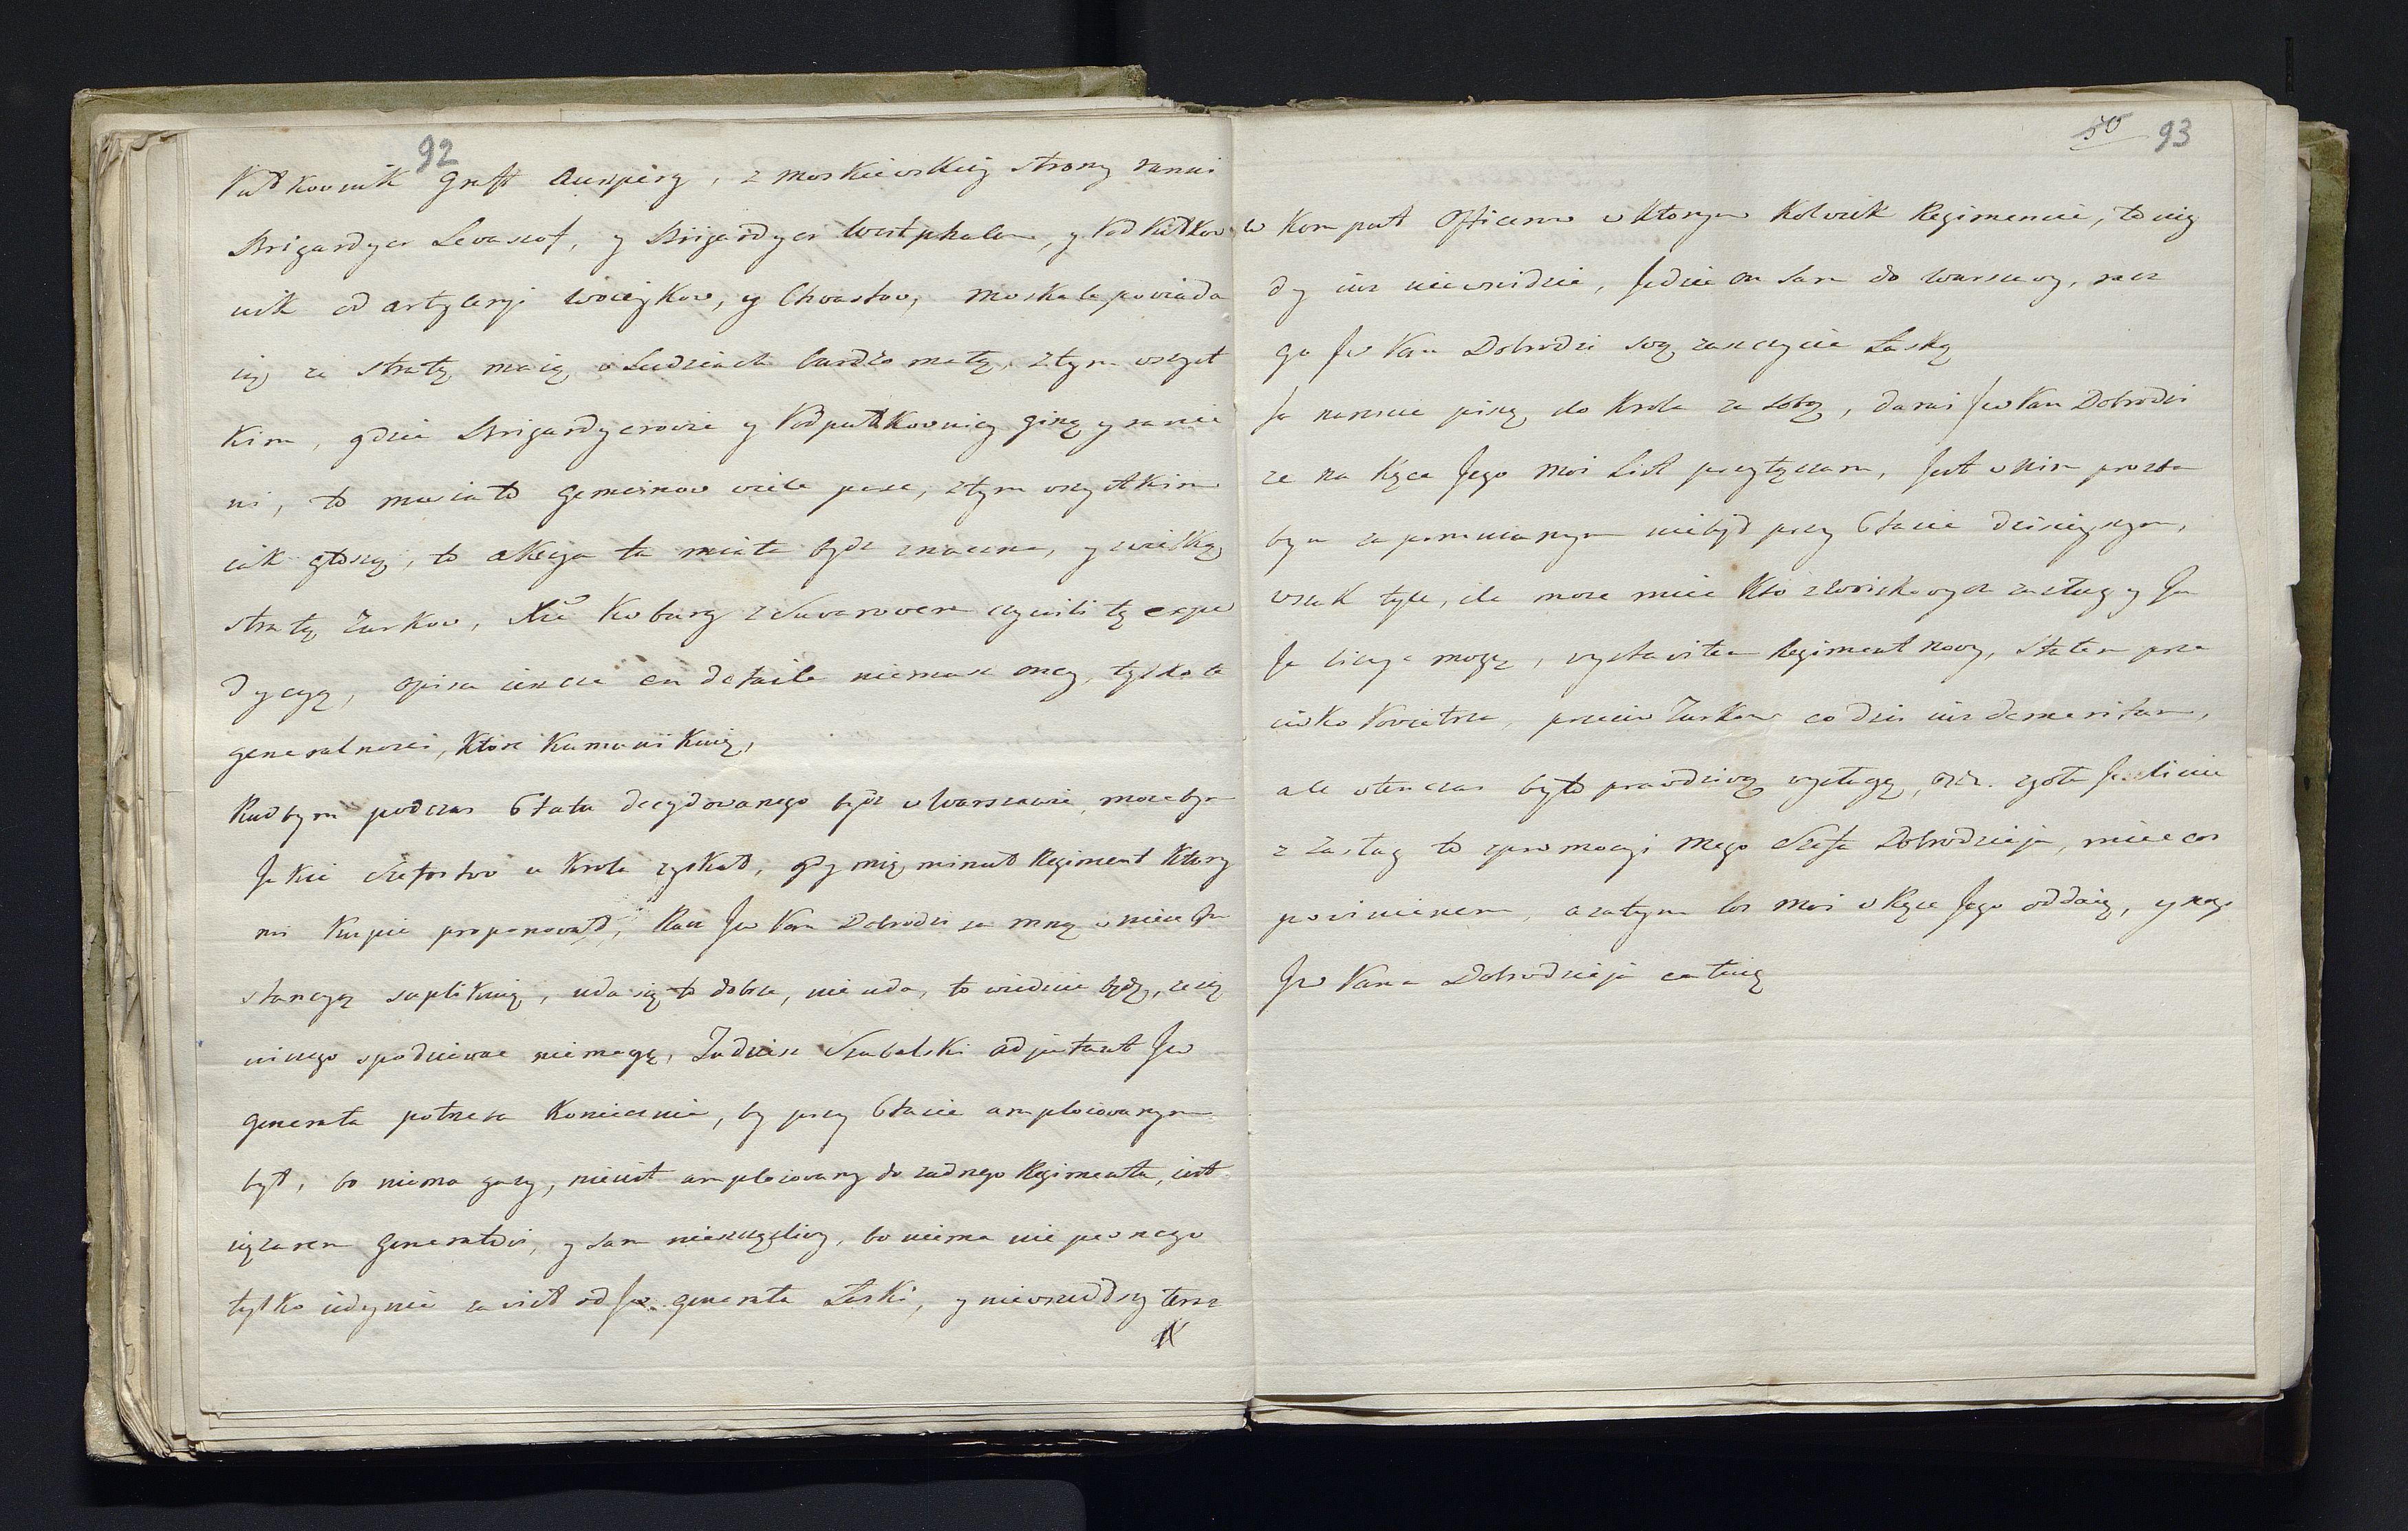 92
Pułkownik Graff Auxperg, z moskiewskiey strony ranni
Brigardyer Levaszof, y Brigardyer Westphalen, y Podpułkow
nik od artyleryi Woieykow, y Chwastow, Moskale powiada
ią ze stratę maią w Ludziach bardzo małą, ztym wszyst
kim, gdzie Brigardyerowie y Podpułkownicy giną y ranie
ni, to musiało gemeinow wiele paść, ztym wszystkim
iak głoszą, to akcya ta miała bydz znaczna, y z wielką
stratą Turkow, Xże Koburg z Suwarowem czynili tę expe
dycyą, opisu ieszcze en detaile niemasz oney, tylko te
generalnosci, ktore kumunikuię,
Radbym podczas Etatu decydowanego bydz w Warszawie, mozebym
Jakie Szefostwo u Krola zyskał, gdy mię minął Regiment ktory
mi kupie proponował, Racz Jw Pan Dobrodzi za mną w nieu In
stancyą suplikuię, uda się to dobrze, nie uda, to wiedzie będę, ze się
niczego spodziewac niemogę, Tadeusz Szubalski adjutant Jw
Generała potrzeba koniecznie, by przy Etacie amploiowanym
był, bo niema gazy, nieiest amploiowany do zadnego Regimentu, iest
ięzarem Generałowi, y sam nieszczęśliwy, bo niema nic pewnego
tylko iedynie zawisł od Jw. Generała Łaski, y niewszedłszy teraz
50 93
w Komput Officerow w ktorym kolwiek Regimencie, to nig
dy iuz niewnidzie, Jedzie on sam do Warszawy, racz
go Jw Pan Dobrodzi swą zaszczycic Łaską
Ja nareszcie piszę do Krola za sobą, daruj Jw Pan Dobrodzi
ze na Ręce Jego moi List przyłączam, Jest w nim prozba
bym zapomnianym niebył przy Etacie dzisieyszym,
wszak tyle, ile moze miec kto z woiskowych zasług y Ja
Ja liczyc mogę, wystawiłem Regiment nowy, Stałem prze
ciwko Powietrza, przeciw Turkow co dzis iuz demeritum,
ale wtenczas było prawdziwą wysługą, etc. zgoła Jezeli nie
z Zasług to z promocyi mego Szefa Dobrodzieja, miec cos
powinienem, a zatym los moi w Ręce Jego oddaię, y nogi
Jw Pana Dobrodzieja całuię